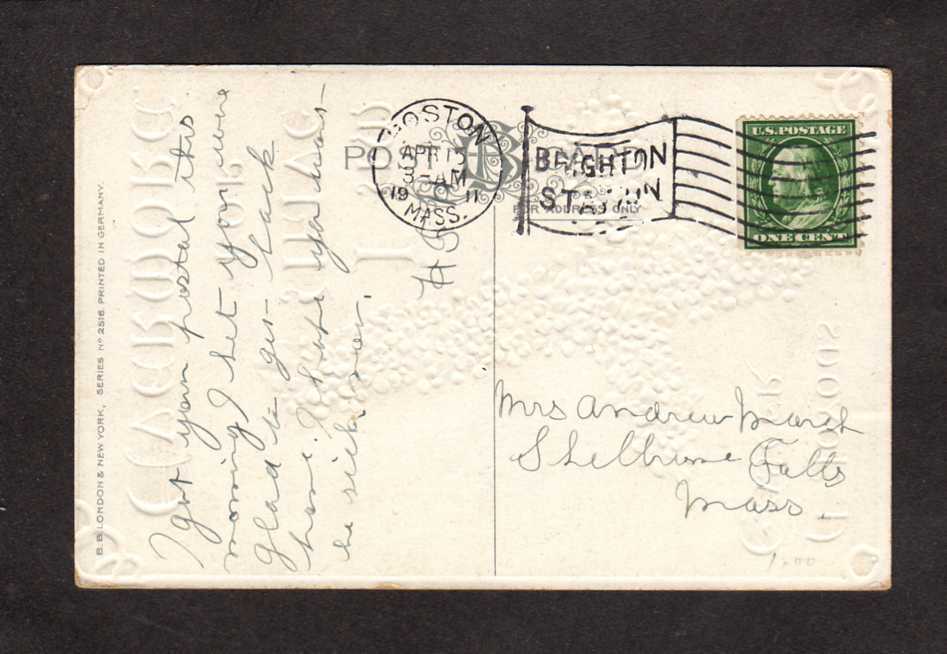 B.B. LONDON & NEW YORK, SERIES No 2516 PRINTED IN GERMANY.
I got your postal this
morning I bet you were
glad to get back
home. I hope you won't
be sick now.
POST
BOSTON
APR 15
3 - AM
19 11
MASS.
BRIGHTON
STATION
FOR ADDRESS ONLY
U.S. POSTAGE
ONE CENT
Mrs Andrew March
Shelburne Falls
Mass.
1.00